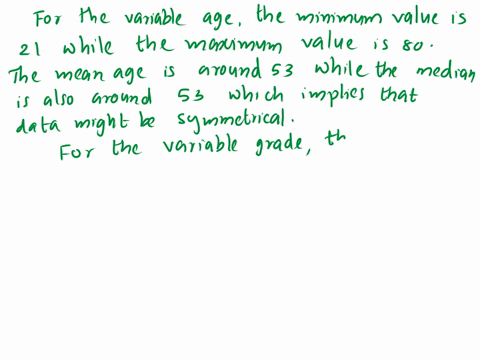 For the variable age, the minimum value is
21 while the maximum value is 80.
The mean age is around 53 while the median
is also around 53 which implies that
data might be symmetrical.
For the variable grade, th